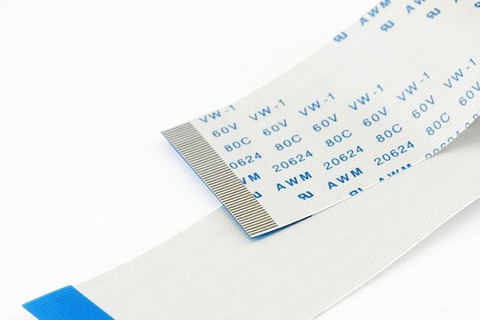 AWM AWM
VW-1 VW-1 VW-1 VW-1 VW-1 VW-1
60V 60V 60V 60V 60V 60V
80C 80C 80C 80C 80C 80C
20624 20624 20624 20624
WM AWM AWM AWM